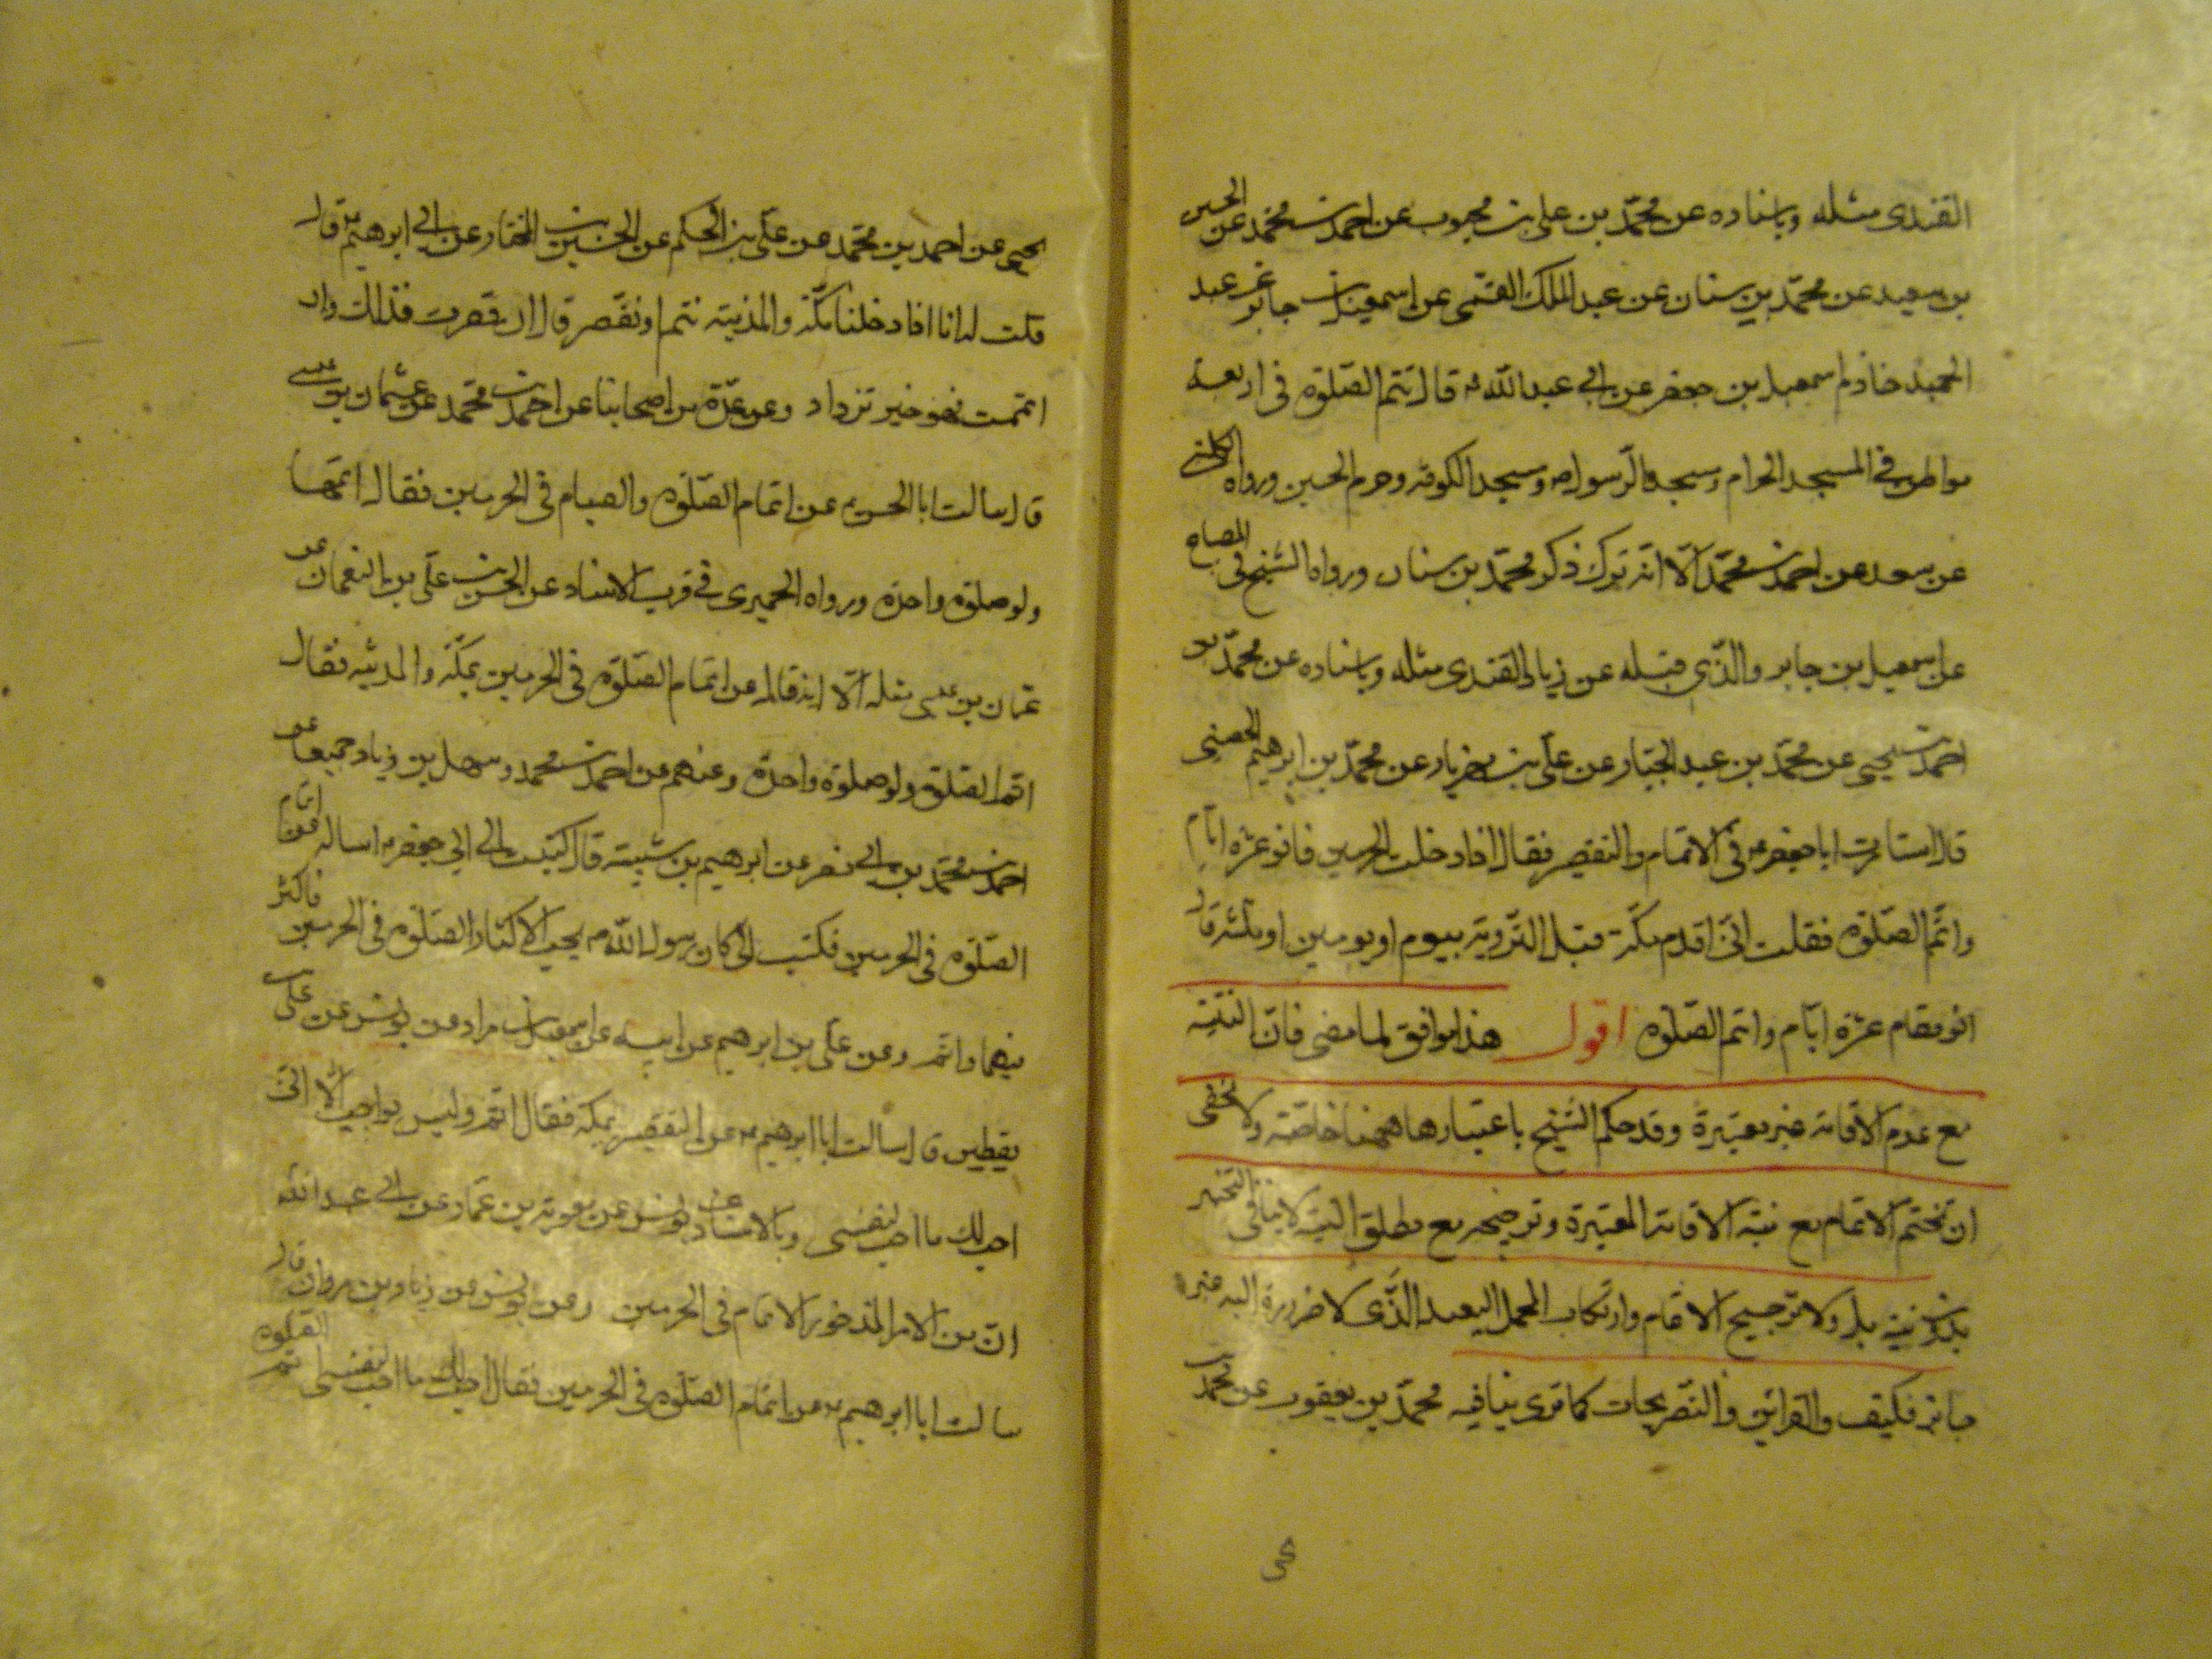 القندى مثله وباسناده عن محمّد بن على بن محبوب عن احمد بن محمّد عن الحسين
بن سعيد عن محمّد بن سنان عن عبد الملك القمّى عن اسمعيل بن جابر عن عبد
الحميد خادم اسمعيل بن جعفر عن ابى عبد الله ع قال تتم الصّلوة فى اربعة
مواطن فى المسجد الحرام ومسجد الرّسول ص ومسجد الكوفة وحرم الحسين ورواه الكلينى
عن سعد عن احمد بن محمّد الّا انّه ترك ذكر محمّد بن سنان ورواه الشّيخ فى المصباح
عن اسمعيل بن جابر والّذى قبله عن زياد القندى مثله وباسناده عن محمّد بن
احمد بن يحيى عن محمّد بن عبد الجبّار عن علّى بن مهزيار عن محمّد بن ابرهيم الحصينى
قال استامرت ابا جعفر ع فى الاتمام والتقصير فقال اذا دخلت الحرمين فانو عشرة ايّام
واتمّ الصّلوة فقلت انّى اقدم مكّة قبل التّروية بيوم او يومين او ثلثة قال
انو مقام عشرة ايّام واتم الصّلوة اقول هذا موافق لما مضى فانّ النّيّة
مع عدم الاقامة غير معتبرة وقد حكم الشّيخ باعتبارها ههنا خاصّة ولا يخفى
ان تحتّم الاتمام مع نيّة الاقامة المعتبرة وترجيحه مع مطلق النية لا ينافى التخيير
بدون نيّة بل ولا ترجيح الاتمام وارتكاب الحمل البعيد الّذى لا ضرورة اليه غير
جائز فكيف والقرائن والتّصريحات كما ترى ينافيه محمّد بن يعقوب عن محمّد بن
يحيى عن احمد بن محمّد عن علّى بن الحكم عن الحسين بن المختار عن ابى ابرهيم ع قال
قلت له انا اذا دخلنا مكّة والمدينة نتم او نقصّر قال ان قصّرت فذلك وان
اتممت فهو خير تزداد وعن عدّة من اصحابنا عن احمد بن محمّد عن عثمان بن عيسى
قال سالت ابا الحسن ع عن اتمام الصّلوة والصيام فى الحرمين فقال اتمّها
ولو صلوة واحدة ورواه الحميرى فى قرب الاسناد عن الحسن بن علّى بن النعمان عن
عثمان بن عيسى مثله الّا انه قال عن اتمام الصّلوة فى الحرمين بمكّة والمدينة فقال
اتمّ الصّلوة ولو صلوة واحدة وعنهم عن احمد بن محمد وسهل بن زياد جميعا عن
احمد بن محمّد بن ابى نصر عن ابرهيم بن شيبة قال كتبت الى ابى جعفر ع اساله عن اتمام
الصّلوة فى الحرمين فكتب الىّ كان رسول الله ص يحب اكثار الصّلوة فى الحرمين فاكثر
فيهما واتمّ وعن علّى بن ابرهيم عن ابيه عن اسمعيل بن مرار عن يونس عن علّى بن
يقطين قال سالت ابا ابرهيم ع عن التقصير بمكة فقال اتمّ وليس بواجب الّا انّى
احبّ لك ما احبّ لنفسى وبالاسناد عن يونس عن معوية بن عمّار عن ابى عبد الله
انّ من الامر المذخور الاتمام فى الحرمين وعن يونس عن زياد بن مروان قال
سالت ابا ابرهيم ع عن اتمام الصّلوة فى الحرمين فقال احبّ لك ما احبّ لنفسى اتمّ الصّلوة